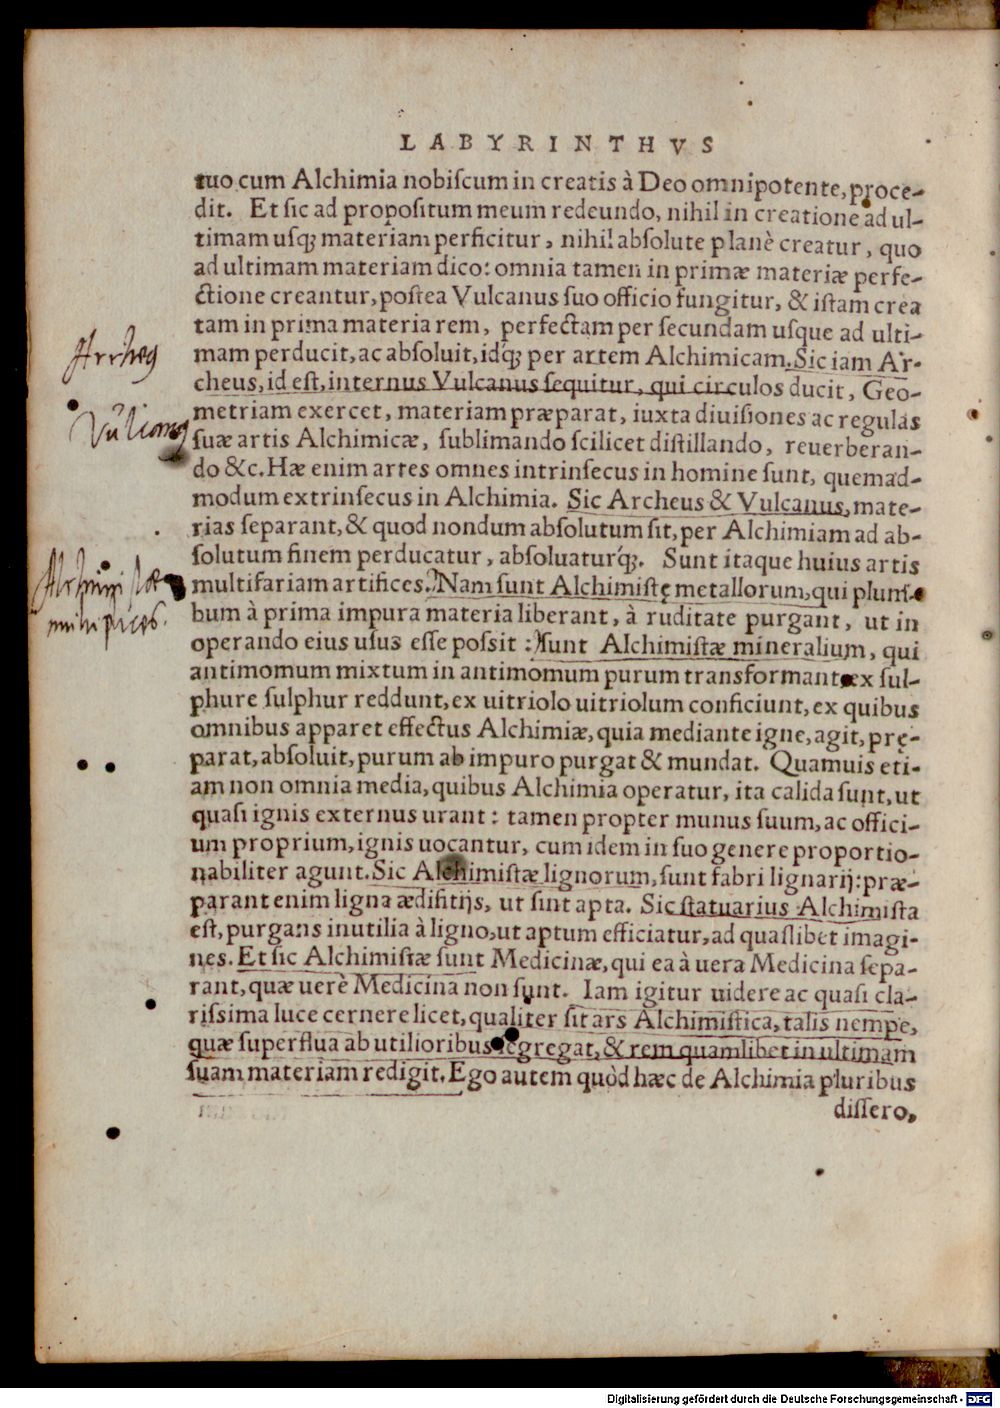 LABYRINTHVS
tuo cum Alchimia nobiſcum in creatis à Deo omnipotente, proce-
dit. Et ſic ad propoſitum meum redeundo, nihil in creatione ad ul-
timam uſq́ꝫ materiam perficitur, nihil abſolute planè creatur, quo
ad ultimam materiam dico: omnia tamen in primæ materiæ perfe-
ctione creantur, poſtea Vulcanus ſuo officio fungitur, & iſtam crea
tam in prima materia rem, perfectam per ſecundam uſque ad ulti-
mam perducit, ac abſoluit, idq́ꝫ per artem Alchimicam. Sic iam Ar-
Archeus
cheus, id eſt, internus Vulcanus ſequitur, qui circulos ducit, Geo-
metriam exercet, materiam præparat, iuxta diuiſiones ac regulas
Vulcanus
ſuæ artis Alchimicæ, ſublimando ſcilicet diſtillando, reuerberan-
do &c. Hæ enim artes omnes intrinſecus in homine ſunt, quemad-
modum extrinſecus in Alchimia. Sic Archeus & Vulcanus, mate-
rias ſeparant, & quod nondum abſolutum ſit, per Alchimiam ad ab-
ſolutum finem perducatur, abſoluaturq́ꝫ. Sunt itaque huius artis
Alchimistæ
multifariam artifices. Nam ſunt Alchimiſtę metallorum, qui plum-
multiplices.
bum à prima impura materia liberant, à ruditate purgant, ut in
operando eius uſus eſſe poſsit: ſunt Alchimiſtæ mineralium, qui
antimomum mixtum in antimomum purum transformant, ex ſul-
phure ſulphur reddunt, ex uitriolo uitriolum conficiunt, ex quibus
omnibus apparet effectus Alchimiæ, quia mediante igne, agit, prę-
parat, abſoluit, purum ab impuro purgat & mundat. Quamuis eti-
am non omnia media, quibus Alchimia operatur, ita calida ſunt, ut
quaſi ignis externus urant: tamen propter munus ſuum, ac offici-
um proprium, ignis uocantur, cum idem in ſuo genere proportio-
nabiliter agunt. Sic Alchimiſtæ lignorum, ſunt fabri lignarij: præ-
parant enim ligna ædifitijs, ut ſint apta. Sic ſtatuarius Alchimiſta
eſt, purgans inutilia à ligno, ut aptum efficiatur, ad quaſlibet imagi-
nes. Et ſic Alchimiſtæ ſunt Medicinæ, qui ea à uera Medicina ſepa-
rant, quæ uerè Medicina non ſunt. Iam igitur uidere ac quaſi cla-
riſsima luce cernere licet, qualiter ſit ars Alchimiſtica, talis nempe,
quæ ſuperflua ab utilioribus ſegregat, & rem quamlibet in ultimam
ſuam materiam redigit. Ego autem quòd hæc de Alchimia pluribus
diſſero,
Digitalisierung gefördert durch die Deutsche Forschungsgemeinschaft - DFG